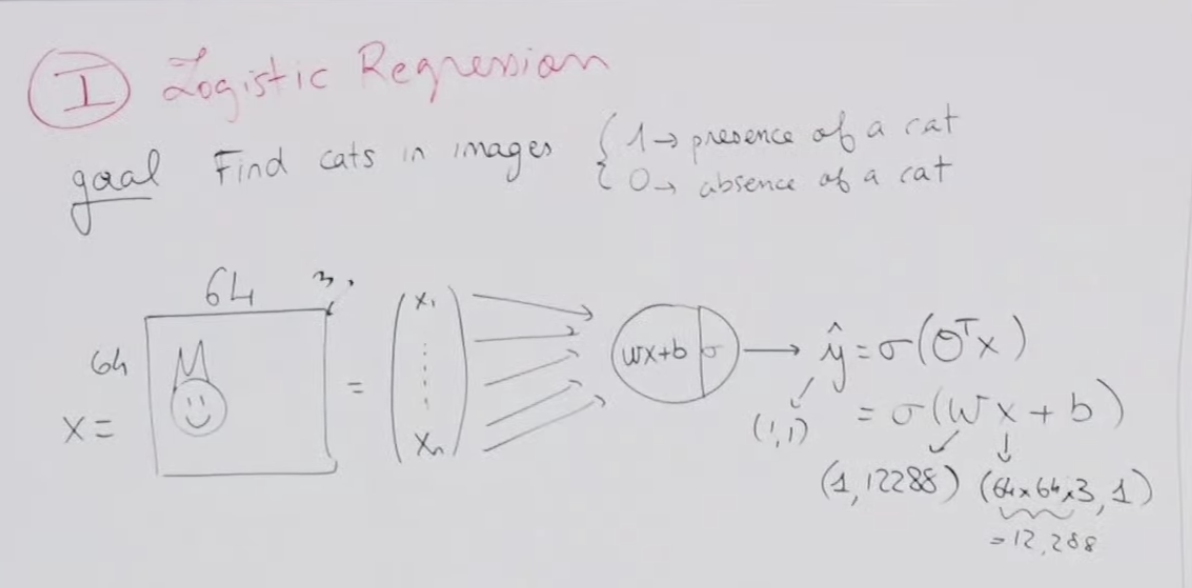 I Logistic Regression
goal Find cats in images { 1 → presence of a cat
0 → absence of a cat
64 3
64
x = = ( x₁ ⋮ xₙ ) wx+b | σ → ŷ = σ(θᵀx)
(1,1) = σ(wx + b)
(1,12288) (64x64x3, 1)
= 12,288